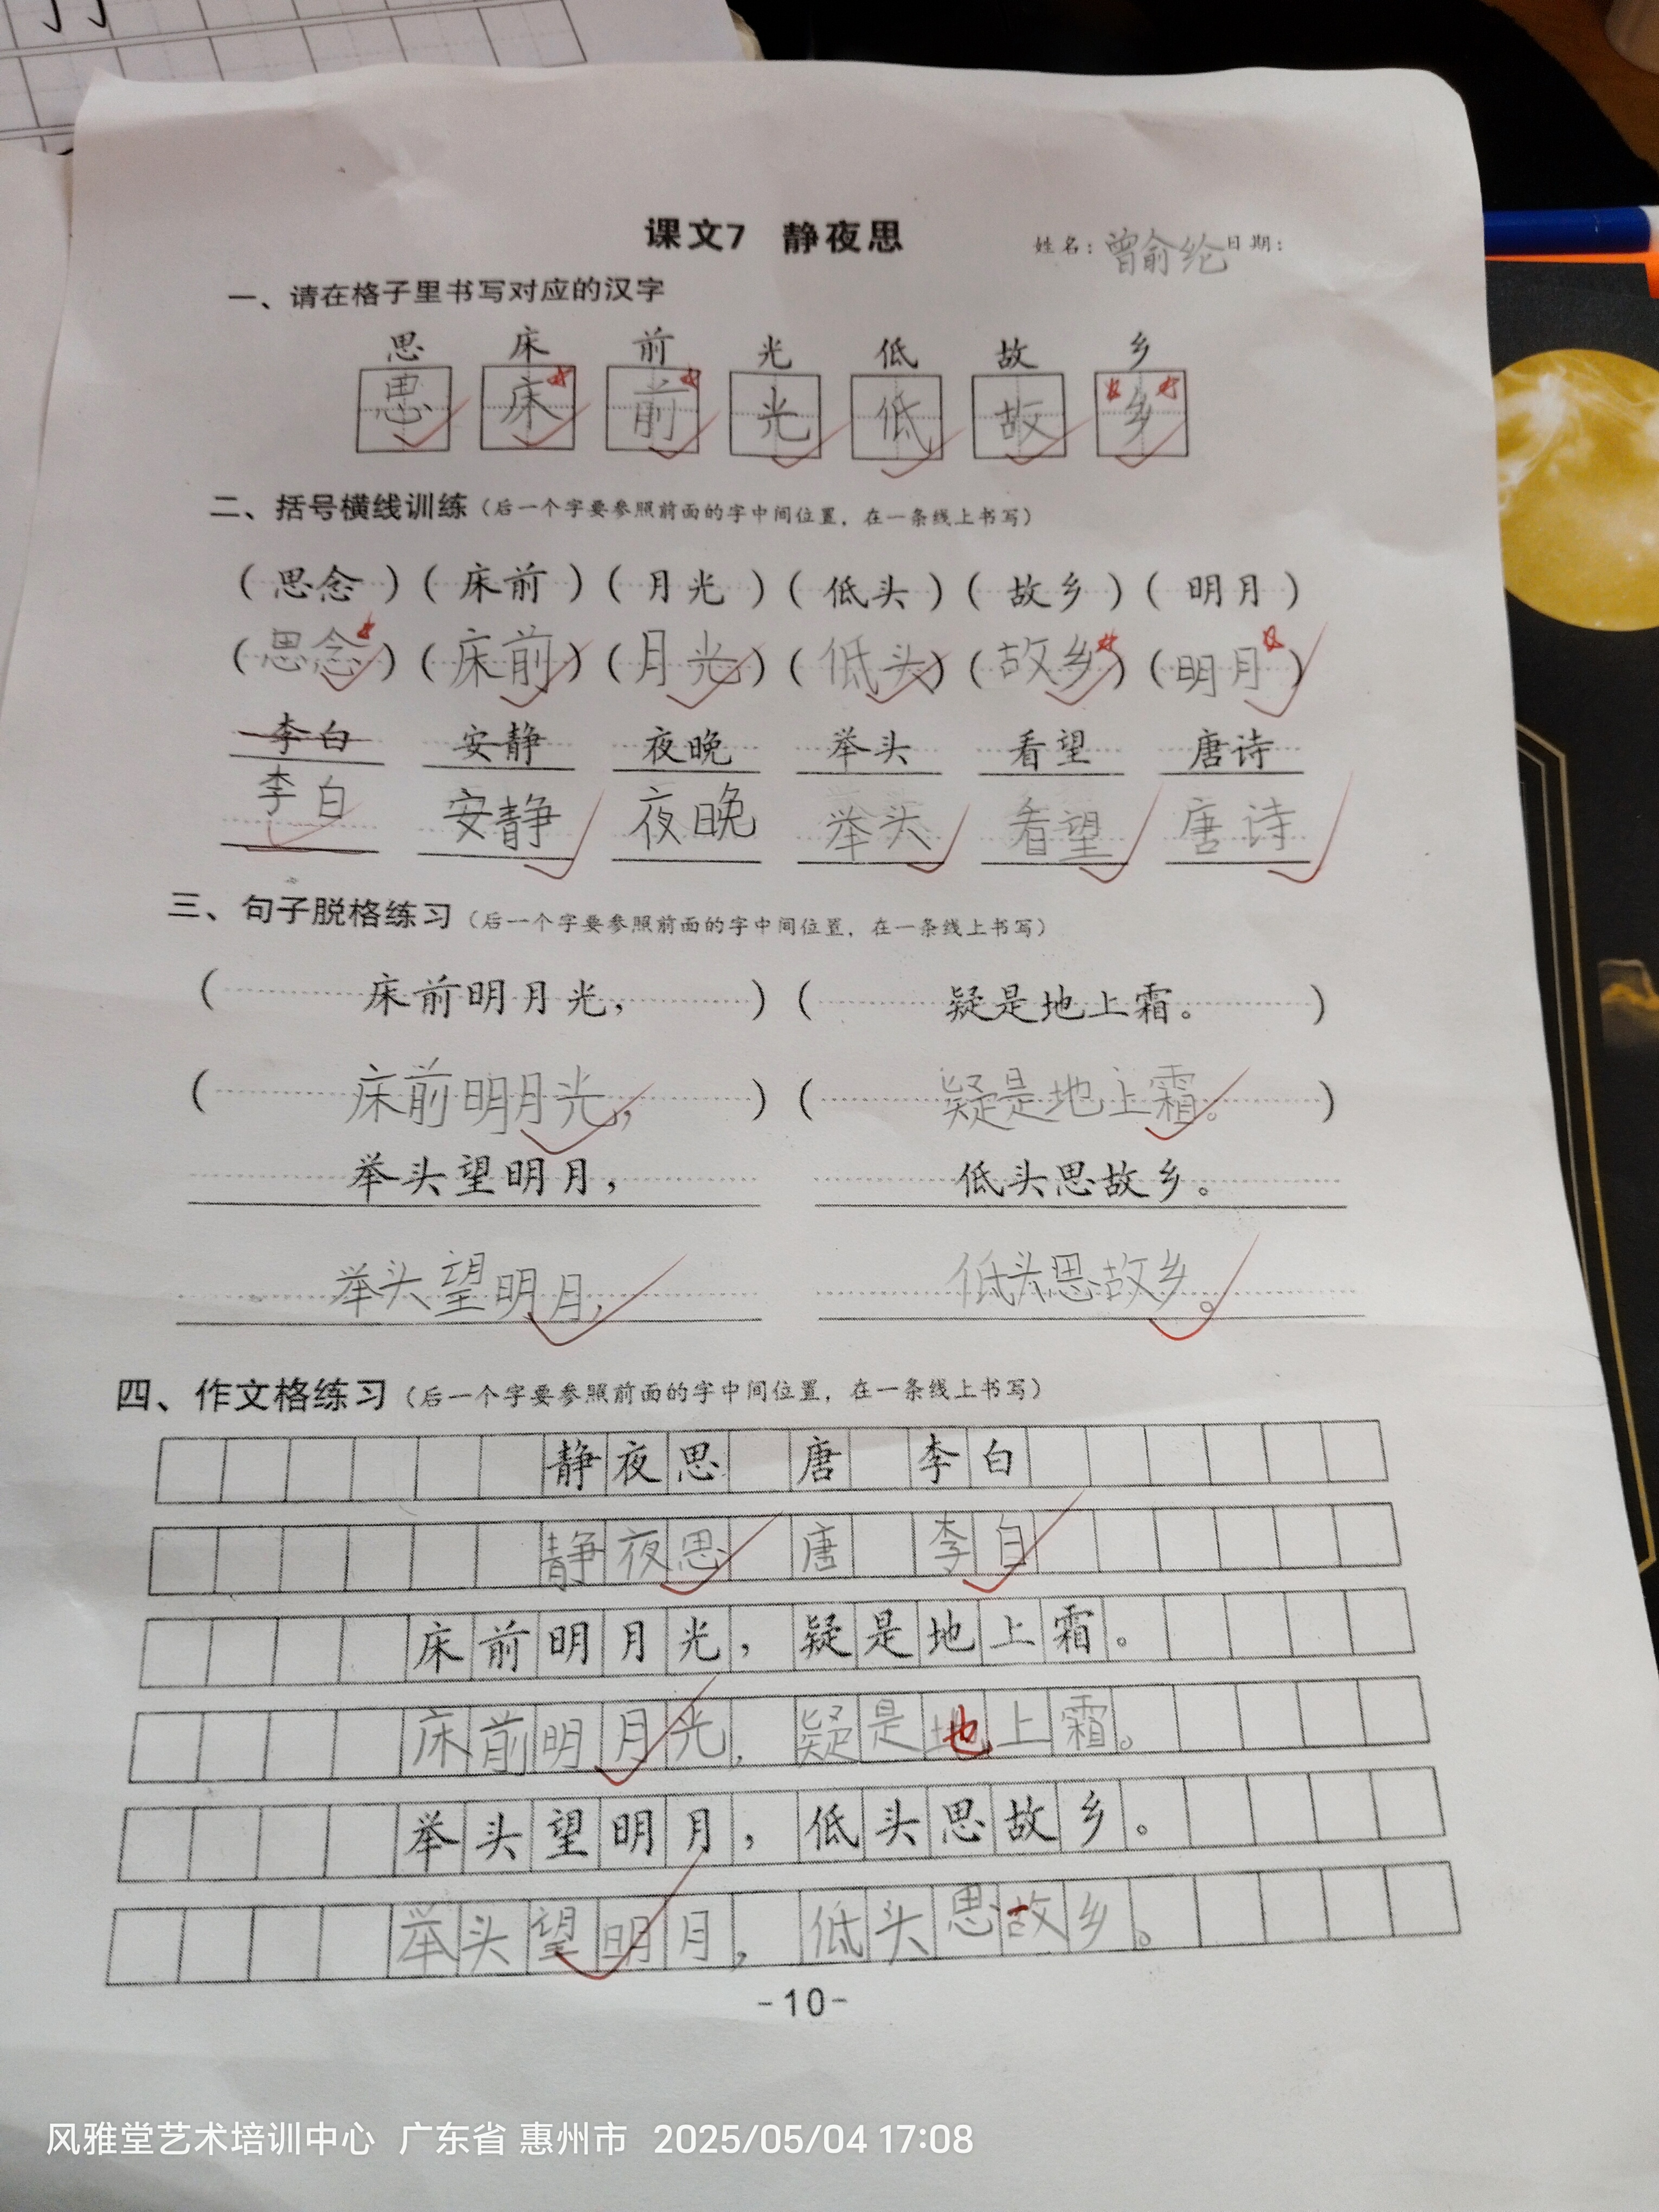 课文7 静夜思 姓名：曾俞纶 日期：
一、请在格子里书写对应的汉字
思 床 前 光 低 故 乡
思 床 前 光 低 故 乡
二、括号横线训练（后一个字要参照前面的字中间位置，在一条线上书写）
（思念）（床前）（月光）（低头）（故乡）（明月）
（思念）（床前）（月光）（低头）（故乡）（明月）
李白 安静 夜晚 举头 看望 唐诗
李白 安静 夜晚 举头 看望 唐诗
三、句子脱格练习（后一个字要参照前面的字中间位置，在一条线上书写）
（床前明月光，）（疑是地上霜。）
（床前明月光，）（疑是地上霜。）
举头望明月， 低头思故乡。
举头望明月， 低头思故乡。
四、作文格练习（后一个字要参照前面的字中间位置，在一条线上书写）
静夜思 唐 李白
静夜思 唐 李白
床前明月光，疑是地上霜。
床前明月光，疑是地上霜。
举头望明月，低头思故乡。
举头望明月，低头思故乡。
-10-
风雅堂艺术培训中心 广东省 惠州市 2025/05/04 17:08